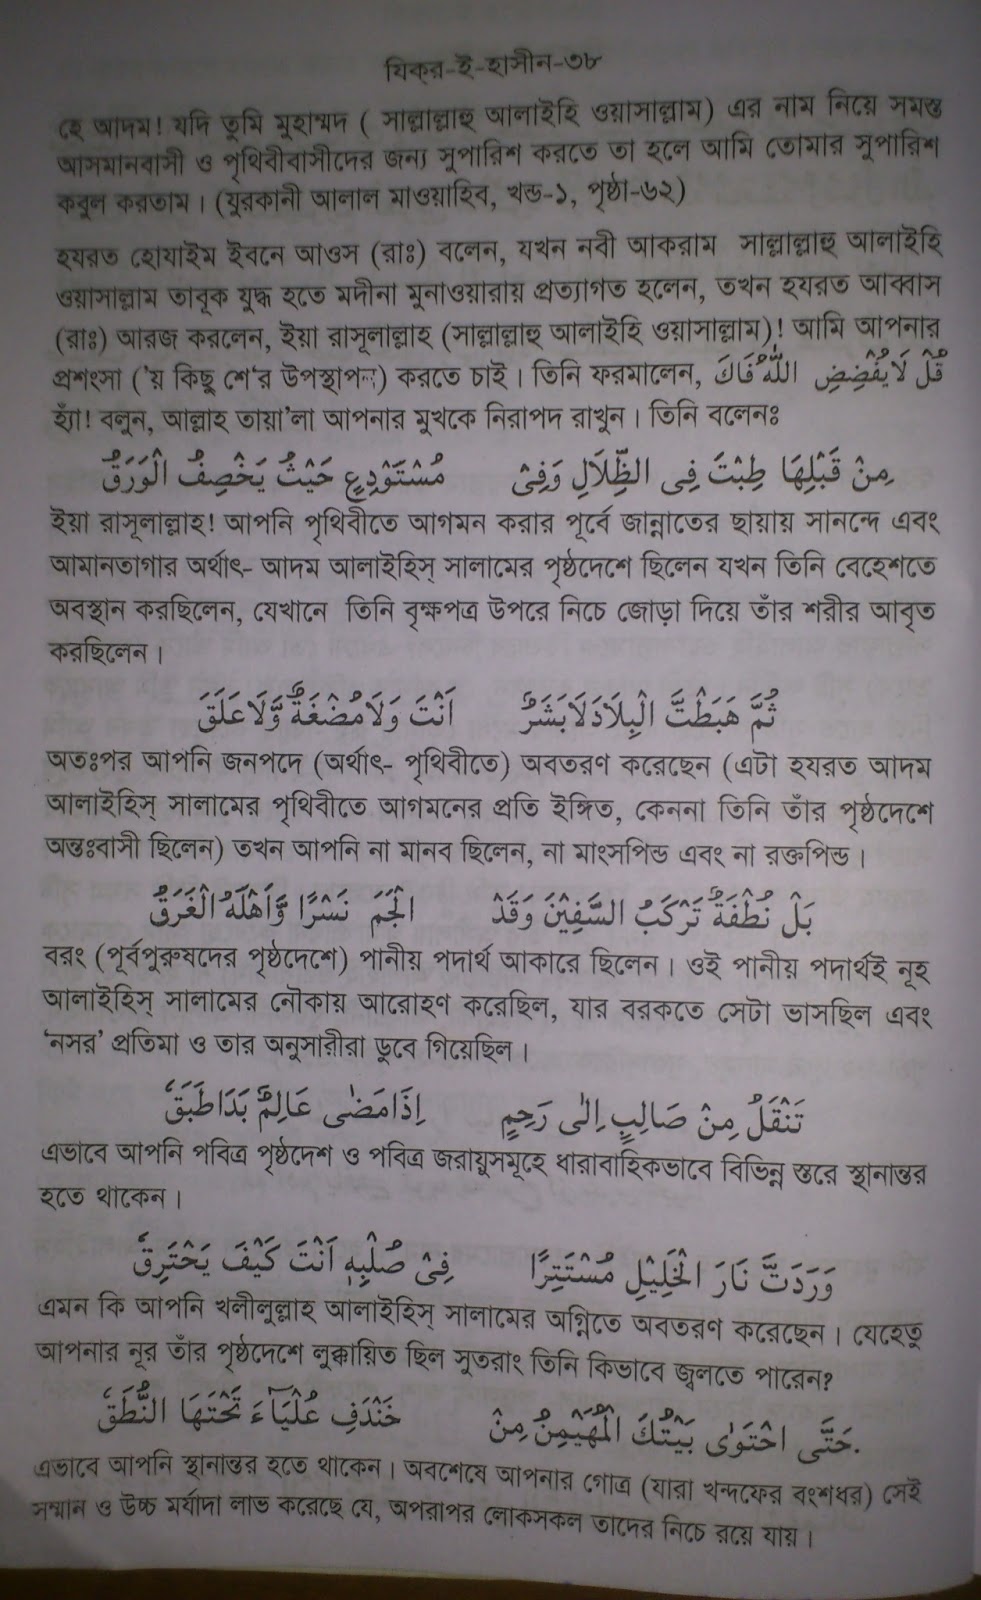 যিক্‌র-ই-হাসীন-৩৮
হে আদম! যদি তুমি মুহাম্মদ ( সাল্লাল্লাহু আলাইহি ওয়াসাল্লাম) এর নাম নিয়ে সমস্ত
আসমানবাসী ও পৃথিবীবাসীদের জন্য সুপারিশ করতে তা হলে আমি তোমার সুপারিশ
কবুল করতাম। (যুরকানী আলাল মাওয়াহিব, খন্ড-১, পৃষ্ঠা-৬২)
হযরত হোযাইম ইবনে আওস (রাঃ) বলেন, যখন নবী আকরাম সাল্লাল্লাহু আলাইহি
ওয়াসাল্লাম তাবূক যুদ্ধ হতে মদীনা মুনাওয়ারায় প্রত্যাগত হলেন, তখন হযরত আব্বাস
(রাঃ) আরজ করলেন, ইয়া রাসূলাল্লাহ (সাল্লাল্লাহু আলাইহি ওয়াসাল্লাম)! আমি আপনার
প্রশংসা ('য় কিছু শে'র উপস্থাপন) করতে চাই। তিনি ফরমালেন, قُلْ لَايُفْضِضِ اللّٰهُ فَاكَ
হ্যাঁ! বলুন, আল্লাহ তায়া'লা আপনার মুখকে নিরাপদ রাখুন। তিনি বলেনঃ
مِنْ قَبْلِهَا طِبْتَ فِى الظِّلَالِ وَفِىْ مُسْتَوْدِعٍ حَيْثُ يَخْصِفُ الْوَرَقُ
ইয়া রাসূলাল্লাহ! আপনি পৃথিবীতে আগমন করার পূর্বে জান্নাতের ছায়ায় সানন্দে এবং
আমানতাগার অর্থাৎ- আদম আলাইহিস্ সালামের পৃষ্ঠদেশে ছিলেন যখন তিনি বেহেশতে
অবস্থান করছিলেন, যেখানে তিনি বৃক্ষপত্র উপরে নিচে জোড়া দিয়ে তাঁর শরীর আবৃত
করছিলেন।
ثُمَّ هَبَطْتَّ الْبِلَادَ لَا بَشَرٌ اَنْتَ وَلَا مُضْغَةٌ وَّلَا عَلَقَ
অতঃপর আপনি জনপদে (অর্থাৎ- পৃথিবীতে) অবতরণ করেছেন (এটা হযরত আদম
আলাইহিস্ সালামের পৃথিবীতে আগমনের প্রতি ইঙ্গিত, কেননা তিনি তাঁর পৃষ্ঠদেশে
অন্তঃবাসী ছিলেন) তখন আপনি না মানব ছিলেন, না মাংসপিন্ড এবং না রক্তপিন্ড।
بَلْ نُطْفَةٌ تَرْكَبُ السَّفِيْنَ وَقَدْ اَلْجَمَ نَسْرًا وَّاَهْلَهُ الْغَرَقُ
বরং (পূর্বপুরুষদের পৃষ্ঠদেশে) পানীয় পদার্থ আকারে ছিলেন। ওই পানীয় পদার্থই নূহ
আলাইহিস্ সালামের নৌকায় আরোহণ করেছিল, যার বরকতে সেটা ভাসছিল এবং
'নসর' প্রতিমা ও তার অনুসারীরা ডুবে গিয়েছিল।
تَنْقَلُ مِنْ صَالِبٍ اِلٰى رَحِمٍ اِذَا مَضٰى عَالِمٌ بَدَا طَبَقٌ
এভাবে আপনি পবিত্র পৃষ্ঠদেশ ও পবিত্র জরায়ুসমূহে ধারাবাহিকভাবে বিভিন্ন স্তরে স্থানান্তর
হতে থাকেন।
وَرَدَتَّ نَارَ الْخَلِيْلِ مُسْتَتِرًا فِىْ صُلْبِهٖ اَنْتَ كَيْفَ يَحْتَرِقُ
এমন কি আপনি খলীলুল্লাহ আলাইহিস্ সালামের অগ্নিতে অবতরণ করেছেন। যেহেতু
আপনার নূর তাঁর পৃষ্ঠদেশে লুক্কায়িত ছিল সুতরাং তিনি কিভাবে জ্বলতে পারেন?
حَتَّى احْتَوٰى بَيْتُكَ الْمُهَيْمِنُ مِنْ خَنْدَفِ عُلْيَآءَ تَحْتَهَا النُّطَقُ
এভাবে আপনি স্থানান্তর হতে থাকেন। অবশেষে আপনার গোত্র (যারা খন্দফের বংশধর) সেই
সম্মান ও উচ্চ মর্যাদা লাভ করেছে যে, অপরাপর লোকসকল তাদের নিচে রয়ে যায়।